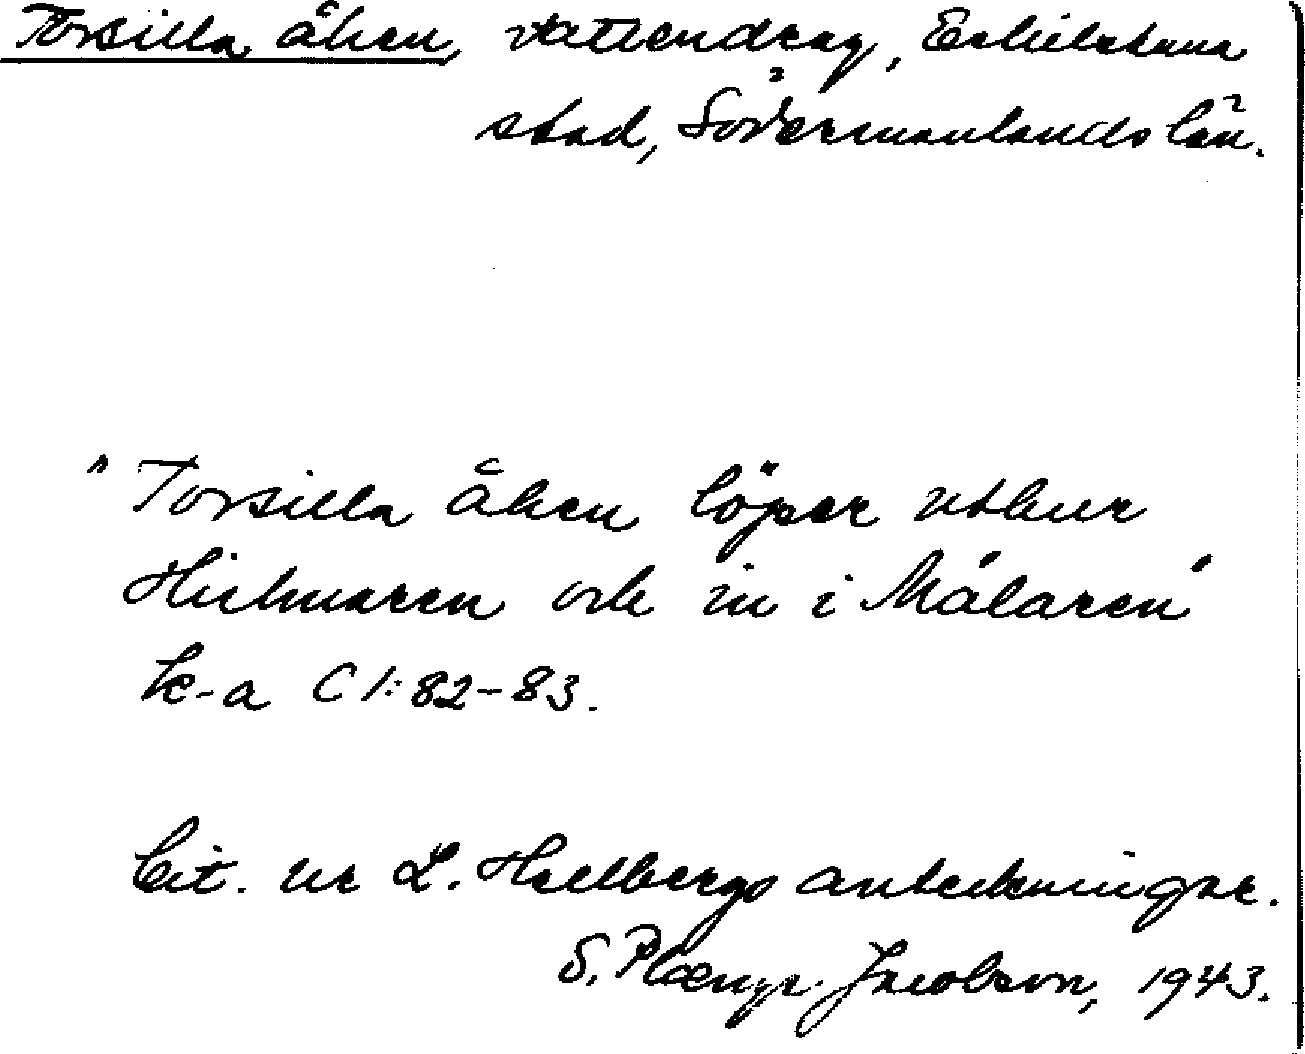 Torsilla åhen, vattendrag, Eskilstuna
stad, Södermanlands län.
"Torsilla åhen löper uthur
Hielmaren och in i Mälaren"
k-a C 1: 82-83.
Cit. ur L. Hellbergs anteckningar.
S. Jacobson, 1943.